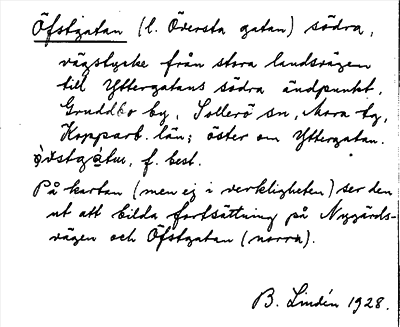 Öfstgatan (l. Översta gatan) södra,
vägstycke från stora landsvägen
till Yttergatans södra ändpunkt,
Gruddbo by, Sollerö sn, Mora tg,
Kopparb. län; öster om Yttergatan.
f. best.
På kartan (men ej i verkligheten) ser den
ut att bilda fortsättning på Nygårds-
vägen och Öfstgatan (norra).
B. Lindén 1928.